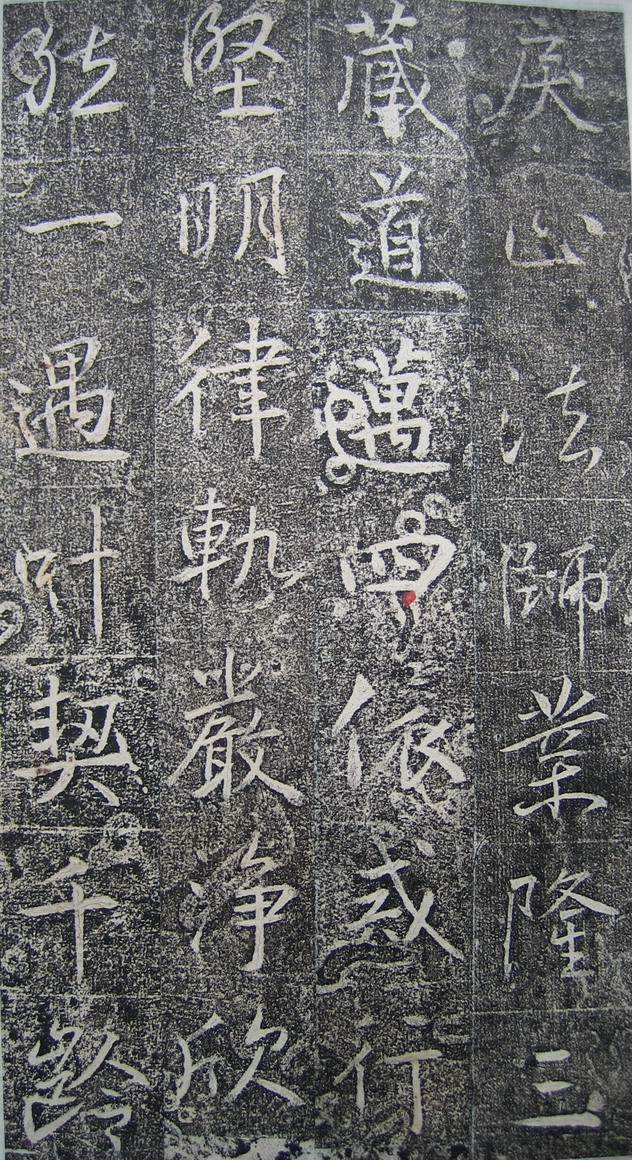 戾止法師業隆三
藏道邁四依戒行
堅明律軌嚴淨欣
一遇叶契千齡